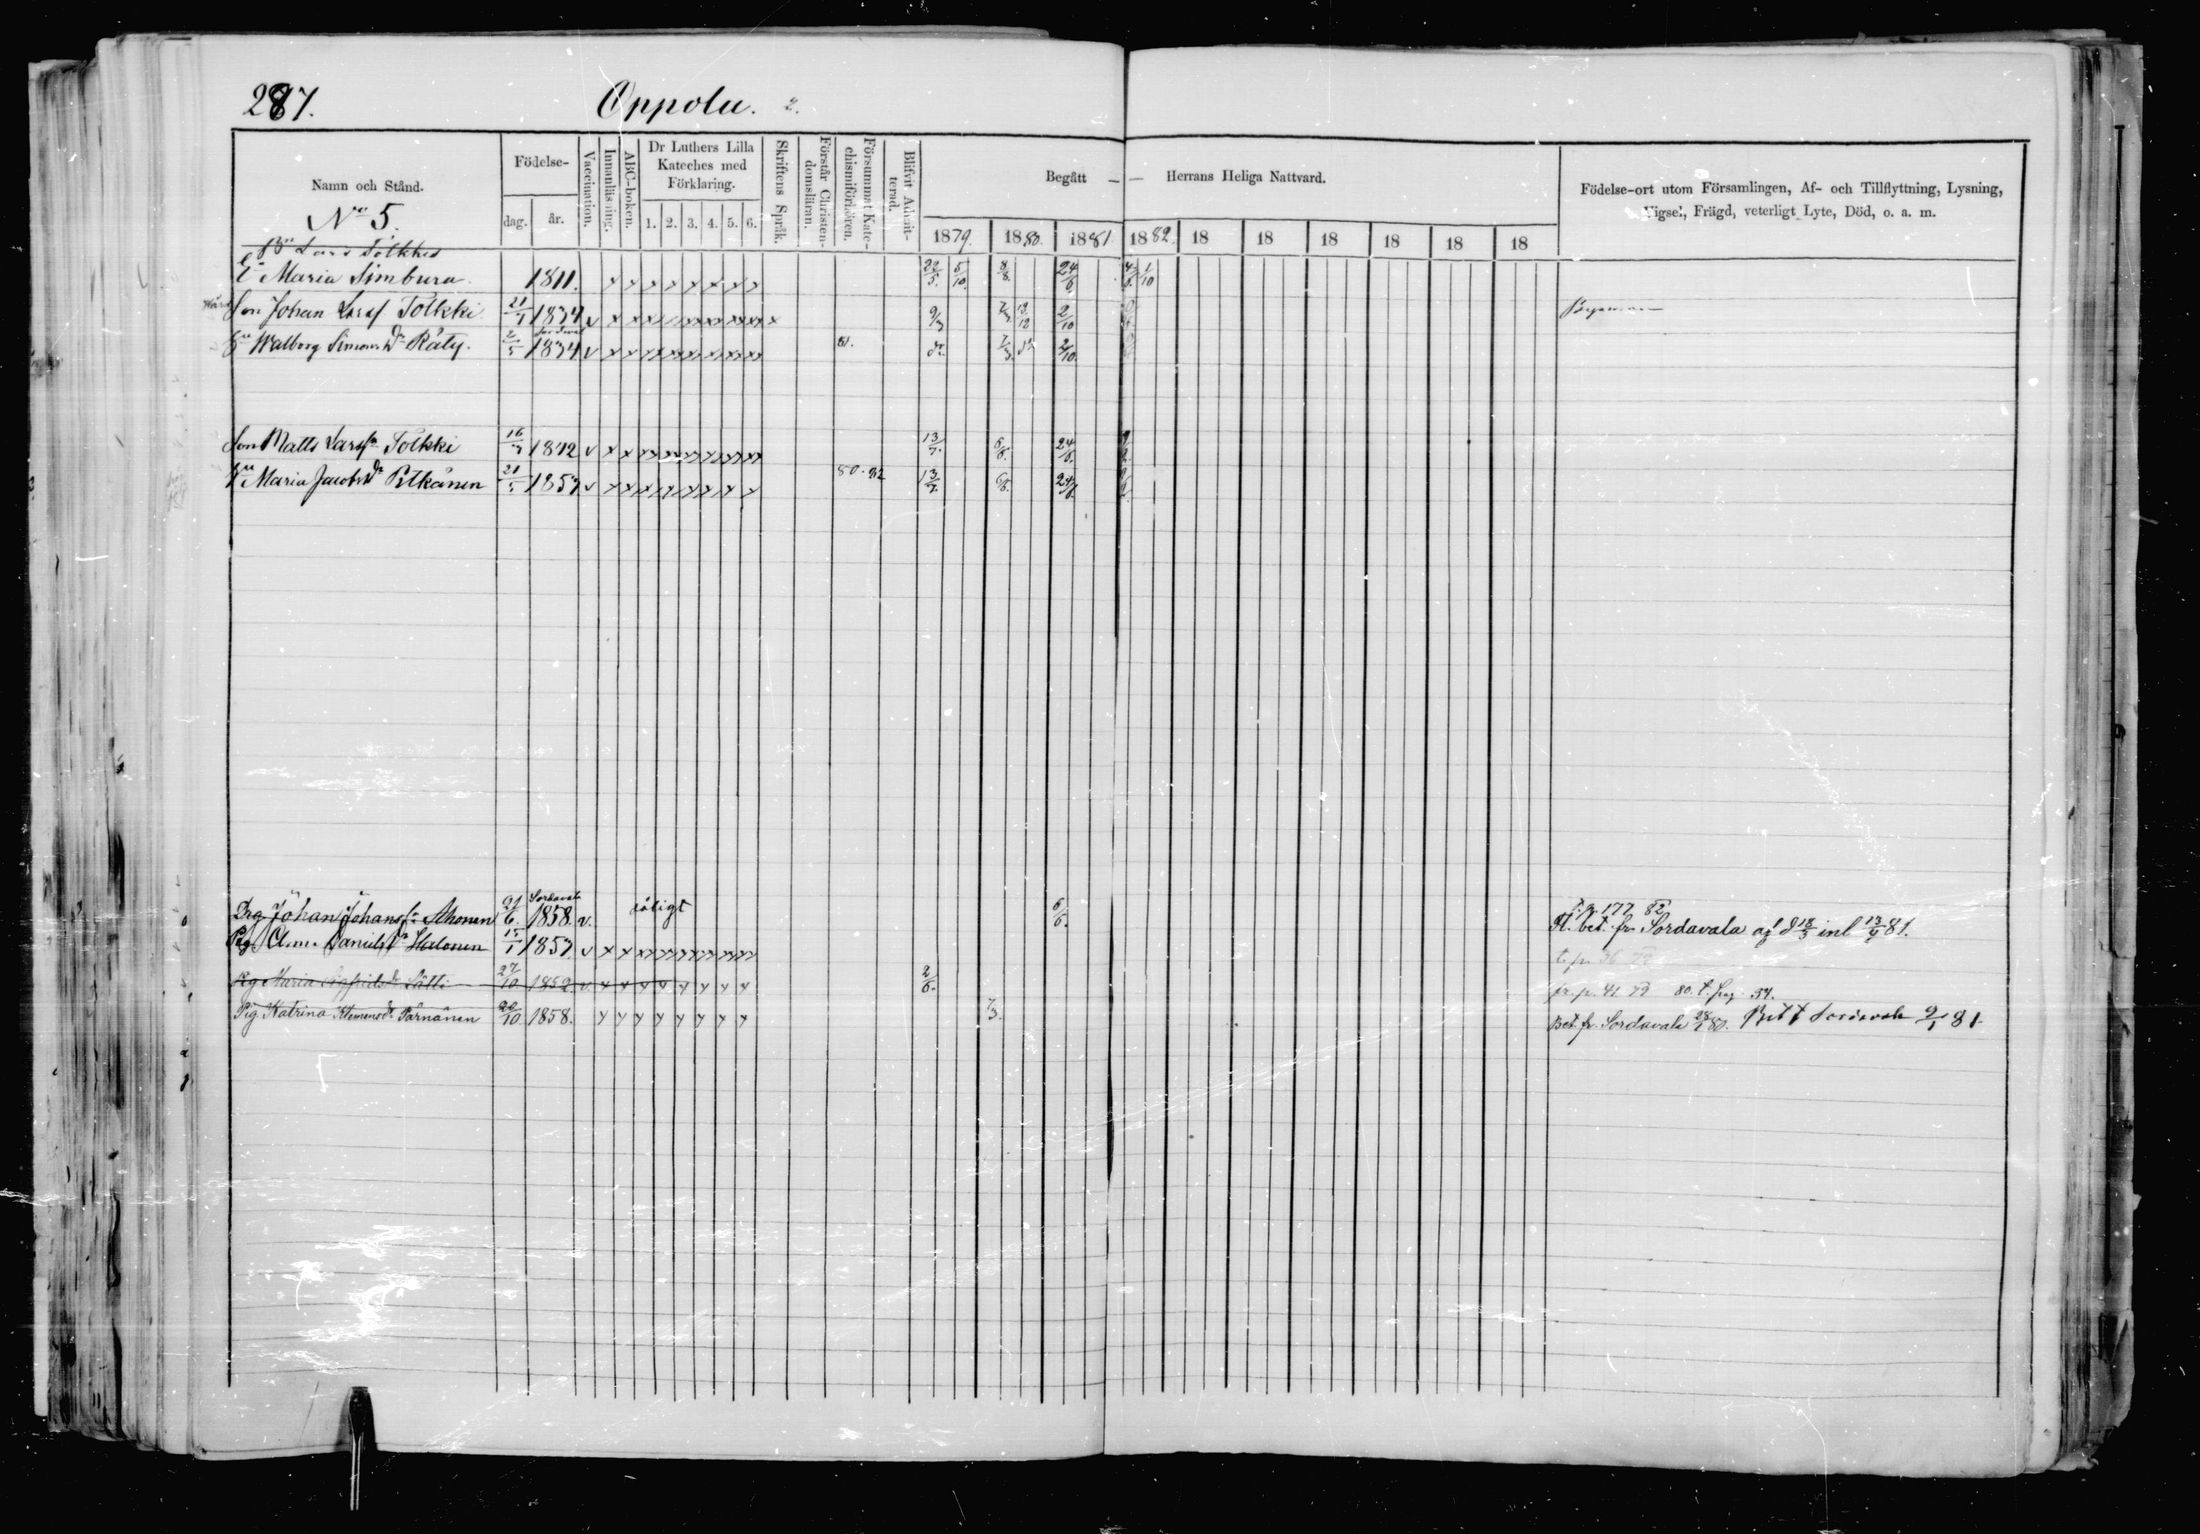 287. Oppola. 2.
Namn och Stånd. Födelse- dag. år. Vaccination. Innanläsning. ABC-boken. Dr Luthers Lilla Kateches med Förklaring. 1. 2. 3. 4. 5. 6. Skriftens Språk. Förstår Christendomsläran. Försummat Katechismiförhören. Blifvit Admitterad.
Begått — — Herrans Heliga Nattvard.
1879. 1880. 1881 1882. 18 18 18 18 18 18
Födelse-ort utom Församlingen, Af- och Tillflyttning, Lysning, Vigsel, Frägd, veterligt Lyte, Död, o. a. m.
No 5.
Lars Tolkki
Maria Simbura 1811. 22/5. 5/10. 8/8. 24/6 1/10
Son Johan Larsf Tolkki 21/7 1834 v 9/3 2/10
Hu Walborg Simons Dr Räty. 2/5 1834 v 81. 7/3. 2/10.
Son Matts Larsf Tolkki 16/7 1842 v 13/7. 6/6. 24/6.
Hu Maria Jacobs Dr Pitkänen 21/5 1857 v 80. 82 13/7. 6/6. 24/6.
Sordavala t. p. 177 82
Drg Johan Johansf: Ahonen 21/6 1858. v. dåligt 6/6. Fl. bet. fr. Sordavala af d 18/3 inl 13/4 81.
Pig Anna Daniels Dr Halonen 15/1 1857. v t. p. 36 79
Pig Maria Sigfrids dr Lätti 27/10 1852. v 2/6. fr. p. 41. 79 80. t. pag. 34.
Pig Katrina Klemens dr Pärnänen 20/10 1858. 7/3. Bet. fr. Sordavala 28/2 80. Bet t Sordavala 9/1 81.